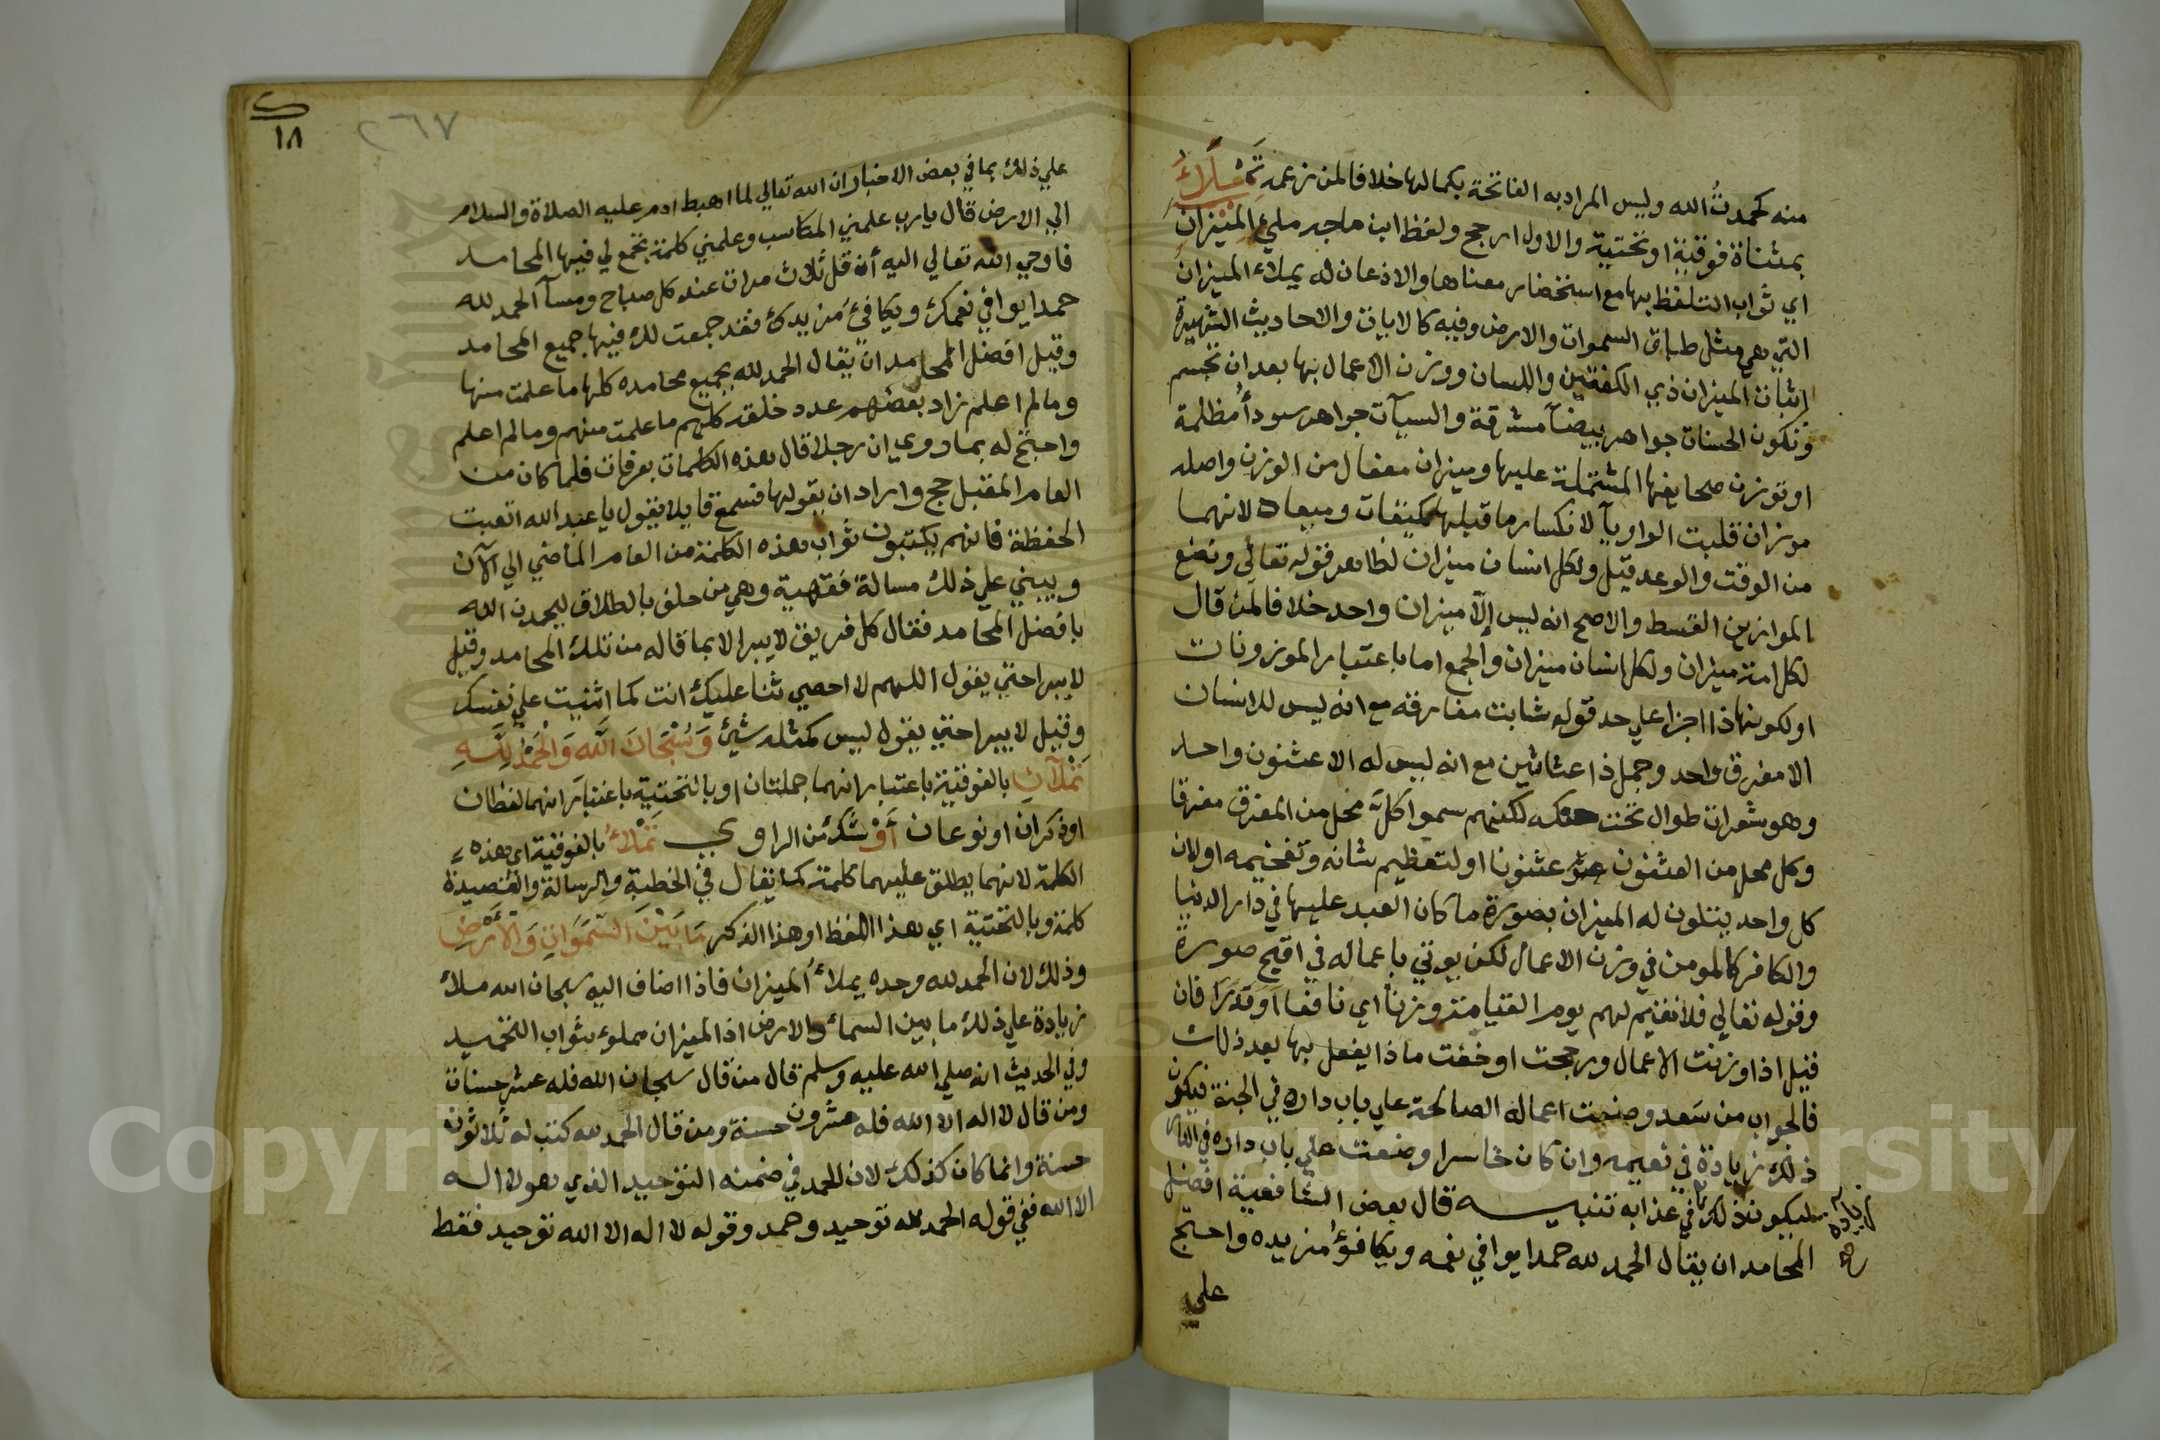 منه كحمدتُ الله وليس المراد به الفاتحة بكمالها خلافا لمن زعمه تَمْلَأُ
بمثناة فوقية او تحتية والاول ارجح ولفظ ابن ماجه ملئ الْمِيْزَانَ
اي ثواب التلفظ بها مع استحضار معناها والاذعان له يملاء الميزان
التي هي مثل طباق السموات والارض وفيه كالايات والاحاديث الشهيرة
اثبات الميزان ذي الكفتين واللسان ووزن الاعمال بها بعد ان تجسم
وتكون الحسنات جواهر بيضآ مشرقة والسيآت جواهر سودا مظلمة
او توزن صحايفها المشتملة عليها وميزان مفعال من الوزن واصله
موزان قلبت الواو يآ لانكسار ما قبلها كميقات وميعاد لانهما
من الوقت والوعد قيل ولكل انسان ميزان لظاهر قوله تعالى ونضع
الموازين القسط والاصح انه ليس إلا ميزان واحد خلافا لمن قال
لكل امة ميزان ولكل انسان ميزان والجمع اما باعتبار الموزونات
او لكونها ذا اجزا على حد قوله شابت مفارقه مع انه ليس للانسان
الا مفرق واحد وجمل ذا عثانين مع انه ليس له الا عثنون واحد
وهو شعرات طوال تحت حنكه لكنهم سموا كل محل من المفرق مفرقا
وكل محل من العثنون عثنونا او لتعظيم شانه وتفخيمه او لان
كل واحد يتلون له الميزان بصورة ما كان العبد عليها في دار الدنيا
والكافر كالمومن في وزن الاعمال لكن يوتي باعماله في اقبح صورة
وقوله تعالي فلا نقيم لهم يوم القيامة وزنا اي نافعا او قدرا فان
قيل اذا وزنت الاعمال ورجحت او خفت ماذا يفعل بها بعد ذلك
فالجواب من سعد وضعت اعماله الصالحة علي باب داره في الجنة فيكون
ذلك زيادة في نعيمه وان كان خاسرا وضعت علي باب داره في النار
ليكون ذلك في عذابه تنبيه قال بعض الشافعية افضل
زيادة
صح
المحامد ان يقال الحمد لله حمدا يوافي نعمه ويكافئ مزيده واحتج
علي
٢٦٧
١٨
علي ذلك بما في بعض الاخبار ان الله تعالي لما اهبط ادم عليه الصلاة والسلام
الي الارض قال يا رب علمني المكاسب وعلمني كلمة تجمع لي فيها المحامد
فاوحي الله تعالي اليه أن قل ثلاث مرات عند كل صباح ومسآ الحمد لله
حمدا يوافي نعمك ويكافئ مزيدك فقد جمعت لك فيها جميع المحامد
وقيل افضل المحامد ان يقال الحمد لله بجميع محامده كلها ما علمت منها
وما لم اعلم زاد بعضهم عدد خلقه كلهم ما علمت منهم وما لم اعلم
واحتج له بما روي ان رجلا قال هذه الكلمات بعرفات فلما كان من
العام المقبل حج واراد ان يقولها فسمع قايلا يقول يا عبد الله اتعبت
الحفظة فانهم يكتبون ثواب هذه الكلمة من العام الماضي الي الآن
ويبني علي ذلك مسالة فقهية وهي من حلف بالطلاق ليحمدن الله
بافضل المحامد فقال كل فريق لا يبرا الا بما قاله من تلك المحامد وقيل
لا يبرا حتي يقول اللهم لا احصي ثنا عليك انت كما اثنيت علي نفسك
وقيل لا يبرا حتي يقول ليس كمثله شئ وَسُبْحَانَ اللَّهِ وَالْحَمْدُ لِلَّهِ
تَمْلَآنِ بالفوقية باعتبار انهما جملتان او بالتحتية باعتبار انهما لفظان
او ذكران او نوعان أَوْ شك من الراوي تَمْلَأُ بالفوقية اي هذه
الكلمة لانهما يطلق عليهما كلمة كما يقال في الخطبة والرسالة والقصيدة
كلمة وبالتحتية اي هذا اللفظ او هذا الذكر مَا بَيْنَ السَّمَوَاتِ وَالْأَرْضِ
وذلك لان الحمد لله وحده يملاء الميزان فاذا اضاف اليه سبحان الله ملأ
زيادة علي ذلك ما بين السماء والارض اذ الميزان مملوء بثواب التحميد
وفي الحديث انه صلي الله عليه وسلم قال من قال سبحان الله فله عشر حسنات
ومن قال لا اله الا الله فله عشرون حسنة ومن قال الحمد لله كتب له ثلاثون
حسنة وانما كان كذلك لان للحمد في ضمنه التوحيد الذي هو لا اله
الا الله ففي قوله الحمد لله توحيد وحمد وقوله لا اله الا الله توحيد فقط
Copyright © King Saud University